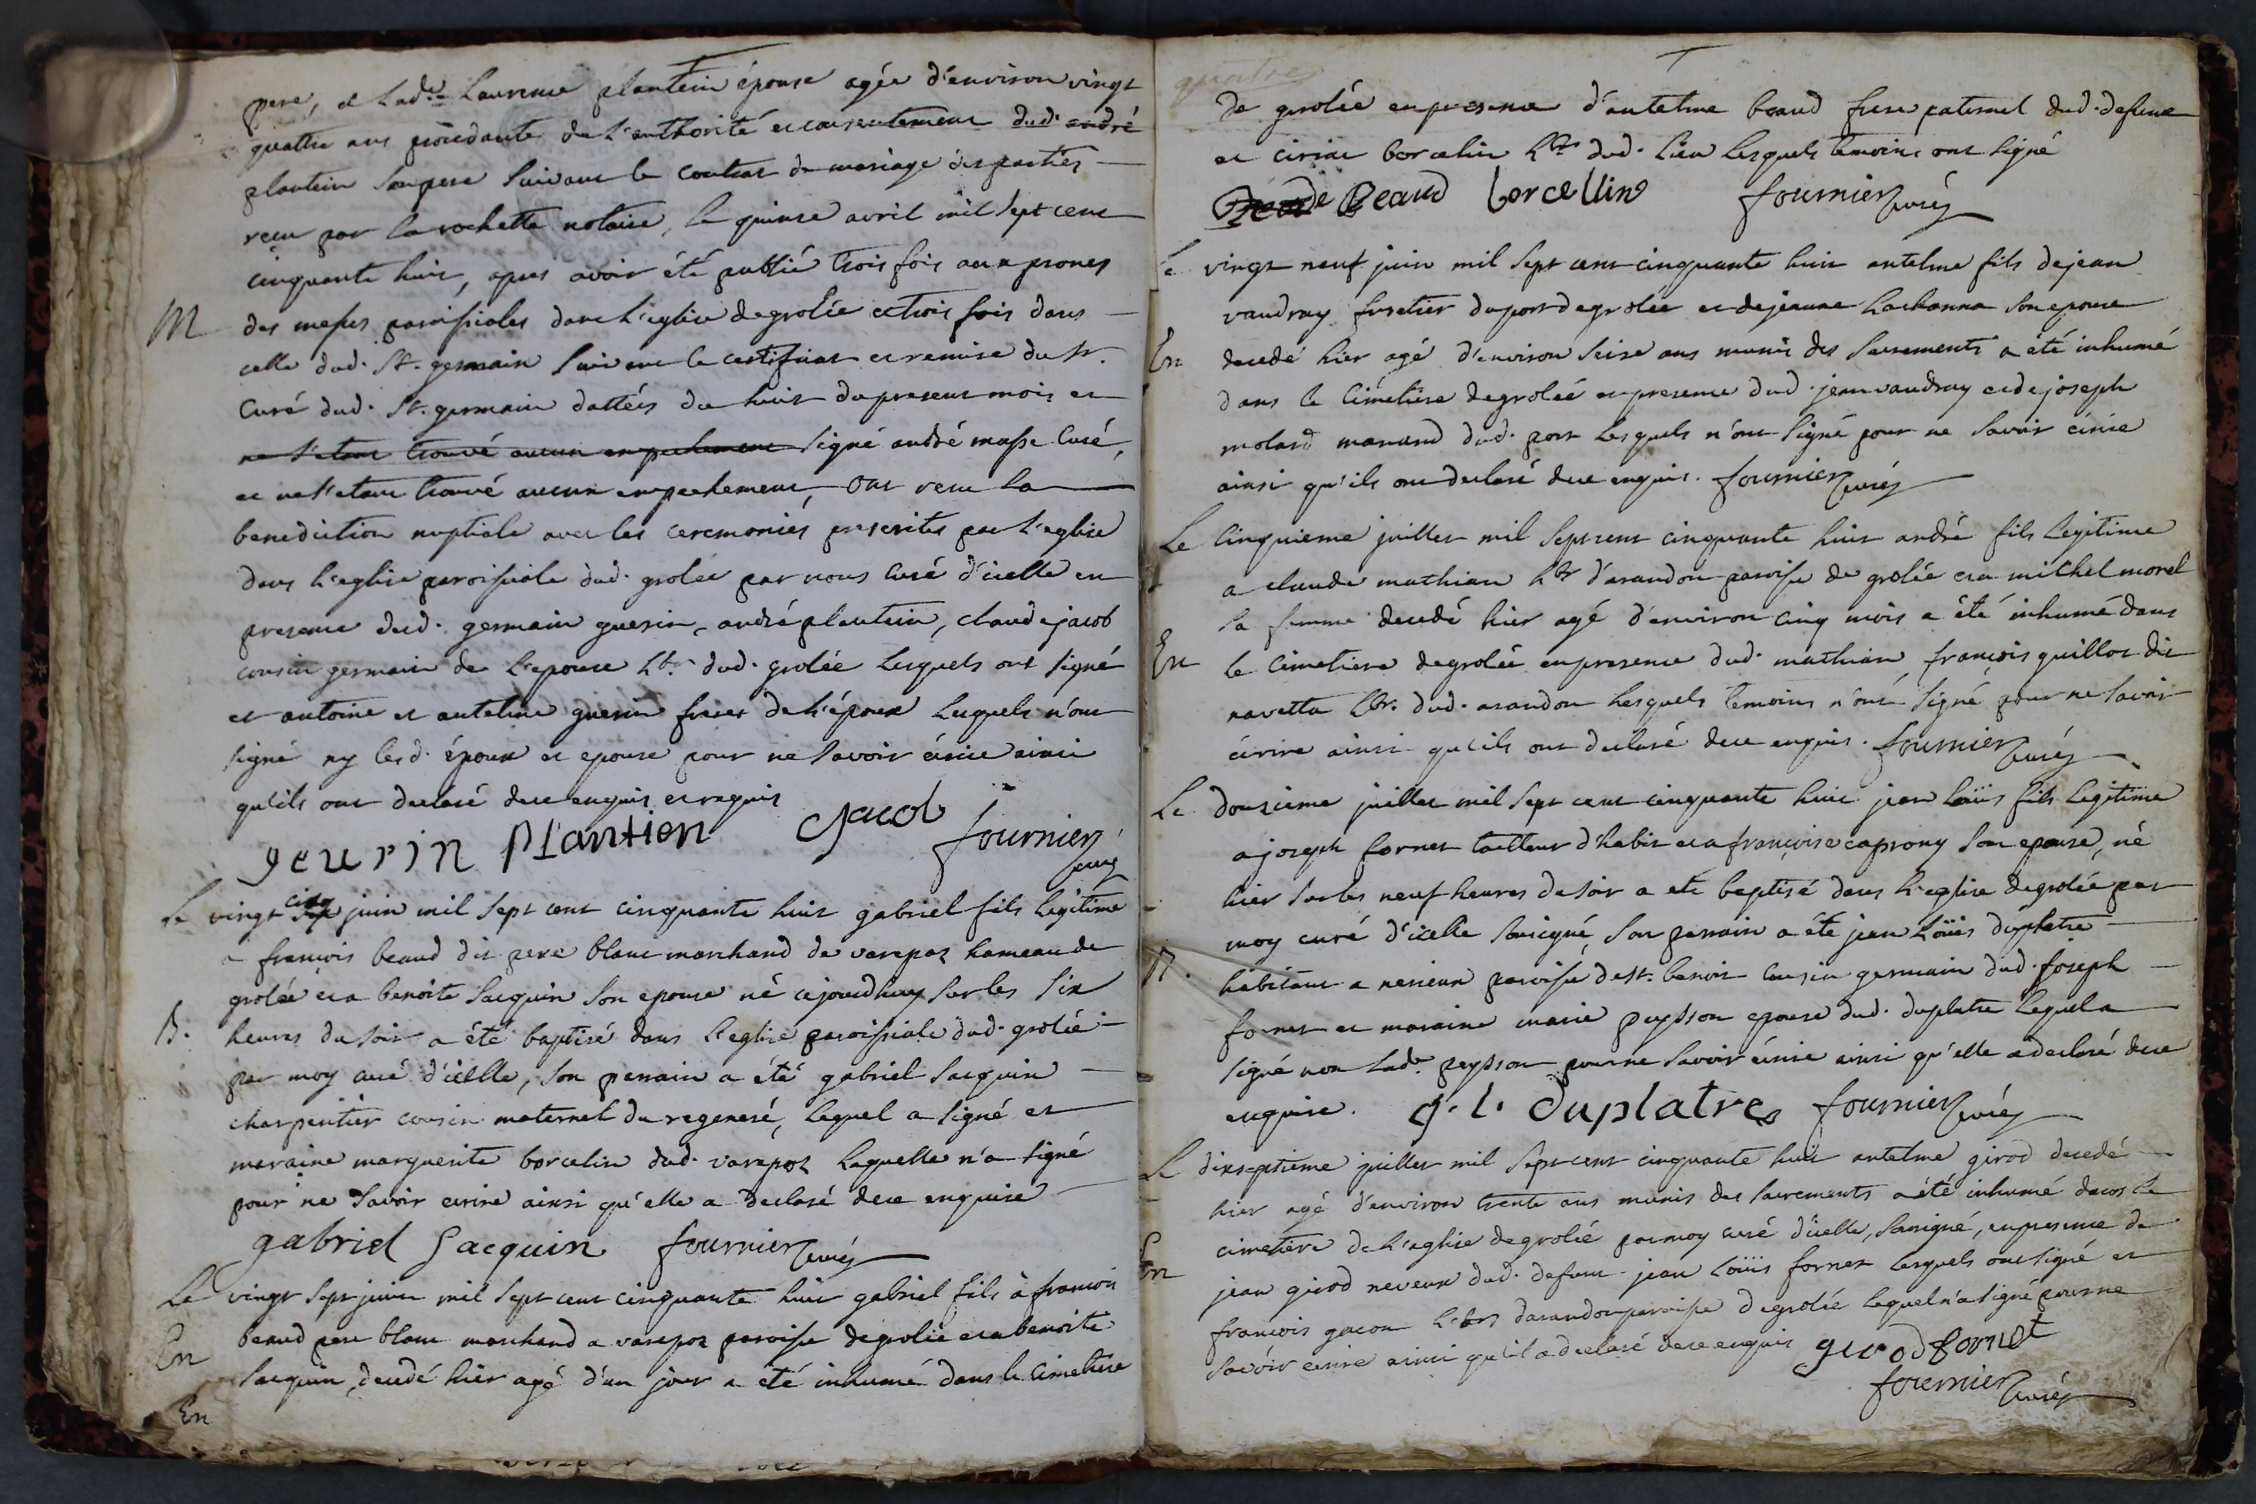 pere, et lad.e Laurence plantein épouse agée d'environ vingt
quattre ans procedante de l'authorité et consentement dud. andré
plantein son pere suivant le contrat de mariage des parties
reçu par la rochette notaire, le quinze avril mil sept cent
cinquante huit, apres avoir été publié trois fois aux prones
M
des messes paroissiales dans l'eglise de grolée et trois fois dans
celle dud. St. germain suivant le certificat et remise du Sr.
Curé dud. St. germain dattées du huit du present mois et
ne s'etant trouvé aucun empechement signé andré masse Curé,
et ne s'etant trouvé aucun empechement, ont recu la
benediction nuptiale avec les ceremonies prescrites par l'eglise
dans l'eglise paroissiale dud. grolée par nous curé d'icelle en
presence dud. germain guerin, andré plantein, claude jacob
cousin germain de l'epouse hbs. dud. grolée lesquels ont signé
et antoine et antelme guerin freres de l'époux lesquels n'ont
signé ny lesd. époux et epouse pour ne savoir écrire ainsi
qu'ils ont declaré de ce enquis et requis
geurin plantien C jacob fournier curé
Le vingt cinq juin mil sept cent cinquante huit gabriel fils legitime
a francois beaud dit pere blanc marchand de varepoz hameau de
grolée et a benoite Sacquin son epouse né cejourdhuy sur les six
B.
heures du soir a été baptisé dans l'eglise paroissiale dud. grolée
par moy curé d'icelle, son parrain a été gabriel Sacquin
charpentier cousin maternel du regeneré, lequel a signé et
maraine marguerite borcelin dud. varepoz laquelle n'a signé
pour ne savoir ecrire ainsi qu'elle a declaré de ce enquise
gabriel Sacquin fournier curé
Le vingt sept juin mil sept cent cinquante huit gabriel fils à francois
En
beaud pere blanc marchand a varepoz paroisse de grolée et a benoite
Sacquin, decedé hier agé d'un jour a été inhumé dans le cimetiere
En
quatre
de grolée en presence d'antelme beaud frere paternel dud. defunt
et ciriac borcelin hbts dud. lieu lesquels temoins ont signé
Beaud borcellin fournier curé
Le vingt neuf juin mil sept cent cinquante huit antelme fils de jean
vaudray fustier du port de grolée et de jeanne lachanna son epouse
En
decedé hier agé d'environ seize ans munis des sacrements a été inhumé
dans le cimetiere de grolée en presence dud. jean vaudray et de joseph
molard manand dud. port lesquels n'ont signé pour ne savoir écrire
ainsi qu'ils ont declaré de ce enquis. fournier curé
Le cinquieme juillet mil sept cent cinquante huit andré fils legitime
a claude mathian hbt d'arandon paroisse de grolée et a michel morel
sa femme decedé hier agé d'environ cinq mois a été inhumé dans
En
le cimetiere de grolée en presence dud. mathian, françois guillot dit
navetta hbt. dud. arandon lesquels temoins n'ont signé pour ne savoir
écrire ainsi qu'ils ont declaré de ce enquis. fournier curé
Le douzieme juillet mil sept cent cinquante huit jean loüis fils legitime
a joseph fornet tailleur d'habit et a françoise caprony son epouse, né
hier sur les neuf heures du soir a eté baptisé dans l'eglise de grolée par
moy curé d'icelle soussigné, son parrain a été jean loüis duplatre
B.
habitant a nerieux paroisse de st. benoit cousin germain dud. joseph
fornet et maraine marie peysson epouse dud. duplatre lequel a
signé non lad.e peysson pour ne savoir écrire ainsi qu'elle a declaré de ce
enquise. J. L. Duplatre fournier curé
Le dixseptieme juillet mil sept cent cinquante huit antelme girod decedé
hier agé d'environ trente ans munis des sacrements a été inhumé dans le
cimetiere de l'eglise de grolée par moy curé d'icelle, soussigné, en presence de
En
jean girod neveux dud. defunt jean loüis fornet lesquels ont signé et
francois gacon hbts d'arandon paroisse de grolée lequel n'a signé pour ne
savoir ecrire ainsi qu'il a declaré de ce enquis girod fornet
fournier curé